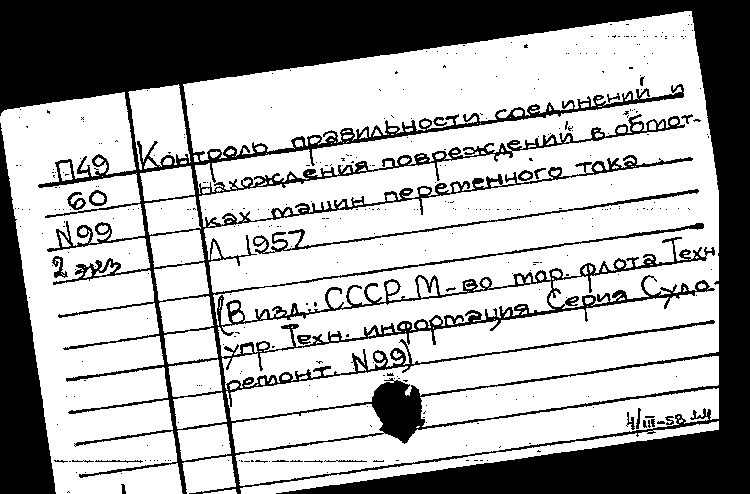 П49 Контроль правильности соединений и
60 нахождения повреждений в обмот-
N99 ках машин переменного тока.
2 экз Л, 1957
(В изд.: СССР. М-во мор. флота. Техн.
упр. Техн. информация. Серия Судо-
ремонт. N99).
4/III-58